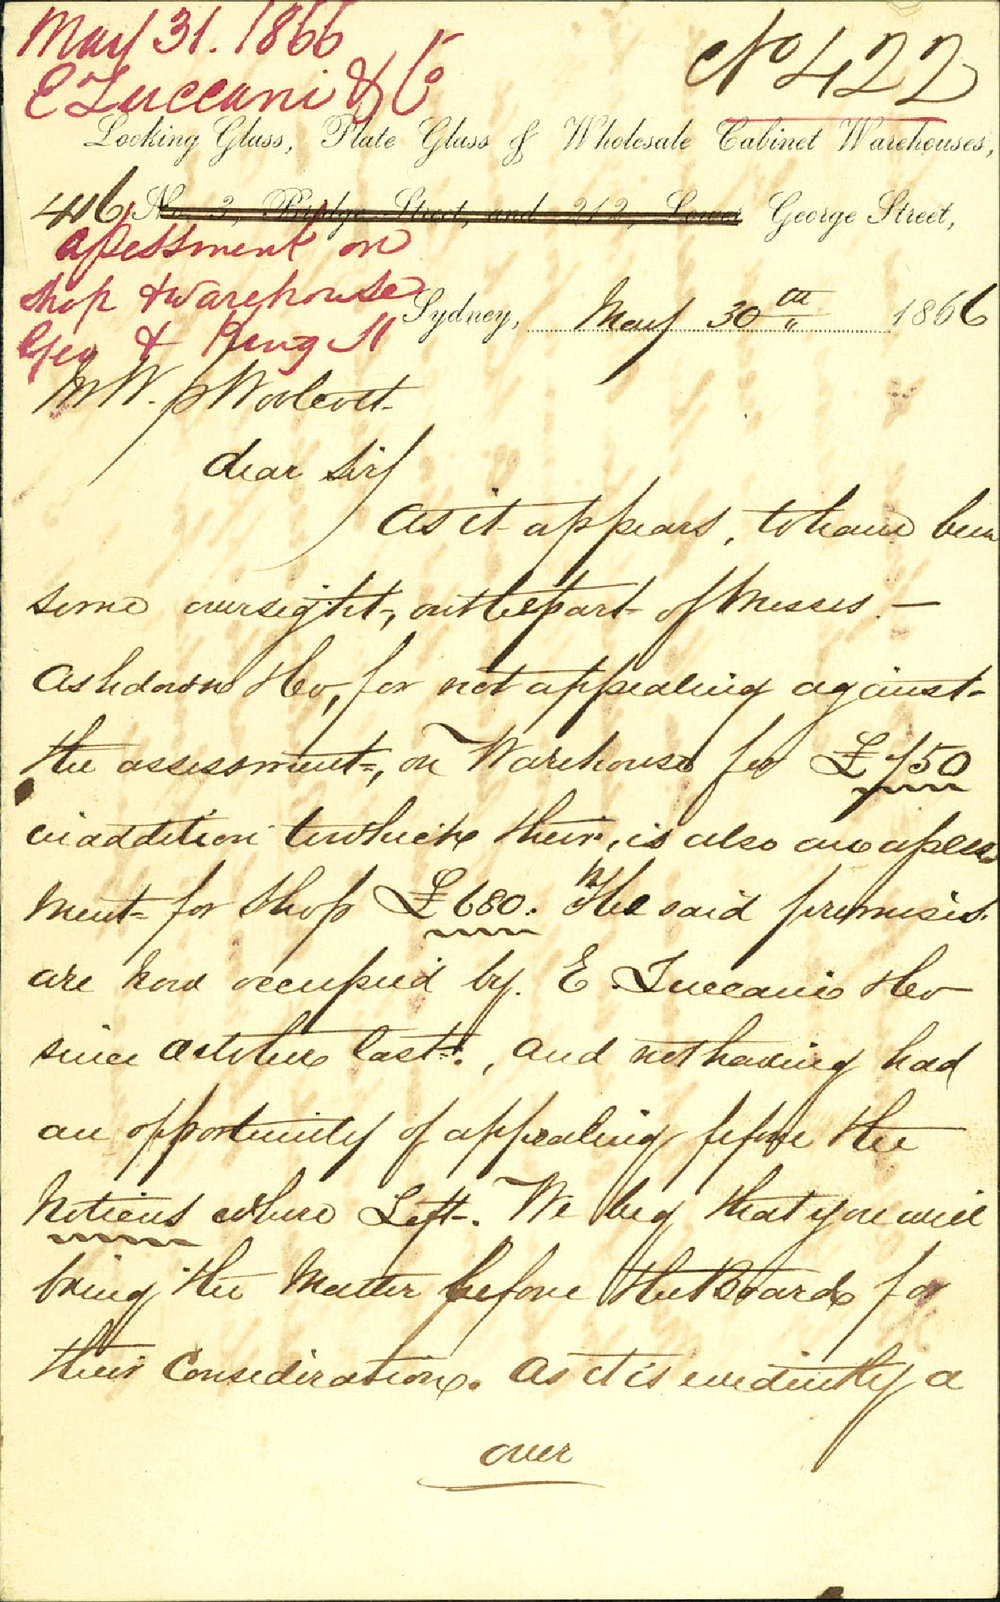 May 31. 1866
E Luccani & Co
No 422
Looking Glass, Plate Glass & Wholesale Cabinet Warehouses,
416, No. 3, Bridge Street, and 212, Lower George Street,
assessment on
shop & warehouse
Geo & King St
Sydney, May 30th 1866
Mr W. P Woolcott
dear Sir
As it appears, to have been
some oversight, on the part of Messrs —
Ashdown & Co, for not appealing against
the assessment, on Warehouse for £450
in addition to which there, is also an assess
ment for Shop £680. The said premises
are now occupied by E Luccani & Co
since October last., and not having had
an opportunity of appealing before the
Notices where Left. We beg that you will
bring the Matter before the Board for
their Consideration. As it is evidently a
over